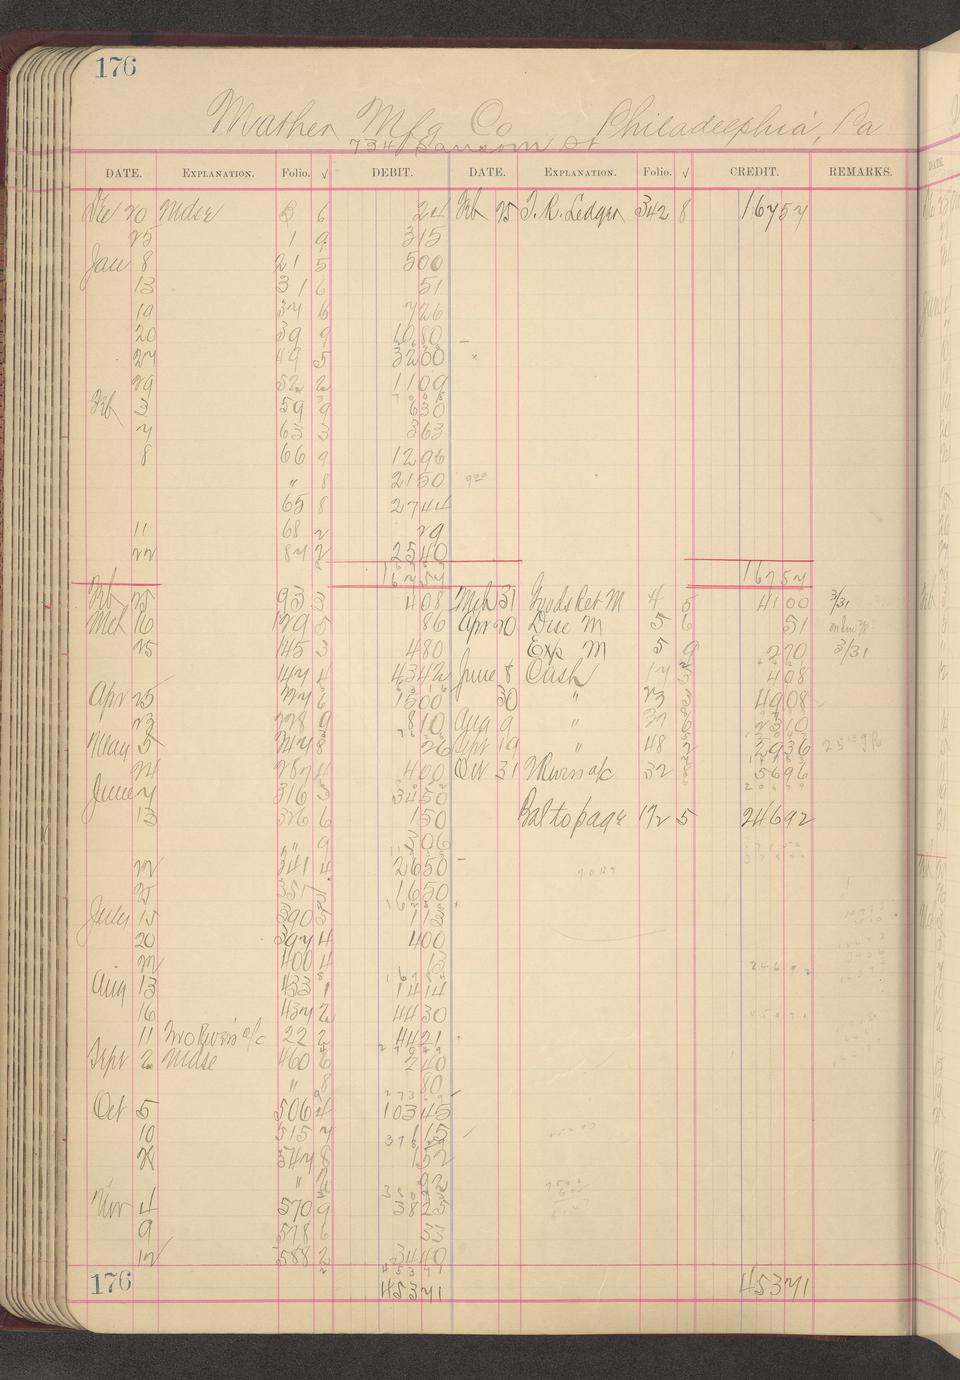 176
Mather Mfg Co Philadelphia, Pa
734 Sansom St
DATE. EXPLANATION. Folio. √ DEBIT. DATE. EXPLANATION. Folio. √ CREDIT. REMARKS.
Dec 20 Mdse 6 24 Feb 25 T. R. Ledger 342 8 16757
25 1 9 315
Jan 8 21 5 500
13 31 6 51
19 37 6 726
20 39 9 1080
27 49 5 3200
29 52 2 1109
Feb 3 59 9 630
7 63 3 363
8 66 9 1296
" 8 2150
65 8 2744
11 68 2 29
22 87 2 2540
16757 16757
Feb 25 93 3 408 Mch 31 Goods Ret M 4 5 4100 3/31
Mch 16 129 5 86 Apr 20 Disc M 5 6 51
25 145 3 480 Exp M 5 9 270 3/31
147 4 4342 June 8 Cash 17 3 408
Apr 25 6 1500 30 " 23 4908
23 228 9 810 Aug 9 " 37 2310
May 5 247 8 26 Sept 19 " 48 2 2936
24 287 4 400 Oct 31 2 Rivers a/c 32 5696
June 7 316 3 3450
13 326 6 150 Bal to page 172 5 24692
" 9 306
22 341 4 2650
25 351 1650
July 15 390 5 113
20 397 4 400
22 400 4 13
Aug 13 433 1 1414
16 437 2 4430
11 Two Rivers a/c 22 2 4421
Sept 2 Mdse 460 6 240
" 8 80
Oct 5 506 4 10345
10 515 7 115
547 8 152
" 92
Nov 4 570 9 3825
9 578 6 33
12 588 2 3440
45371
176 45371 45371